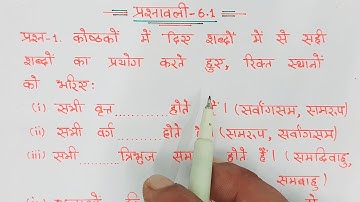 प्रश्नावली-6.1
प्रश्न-1. कोष्ठकों में दिए शब्दों में से सही
शब्दों का प्रयोग करते हुए, रिक्त स्थानों
को भरिए:
(i) सभी वृत्त ............ होते हैं। (सर्वांगसम, समरूप)
(ii) सभी वर्ग ............ होते हैं। (समरूप, सर्वांगसम)
(iii) सभी ............ त्रिभुज सम होते हैं। (समद्विबाहु,
समबाहु)